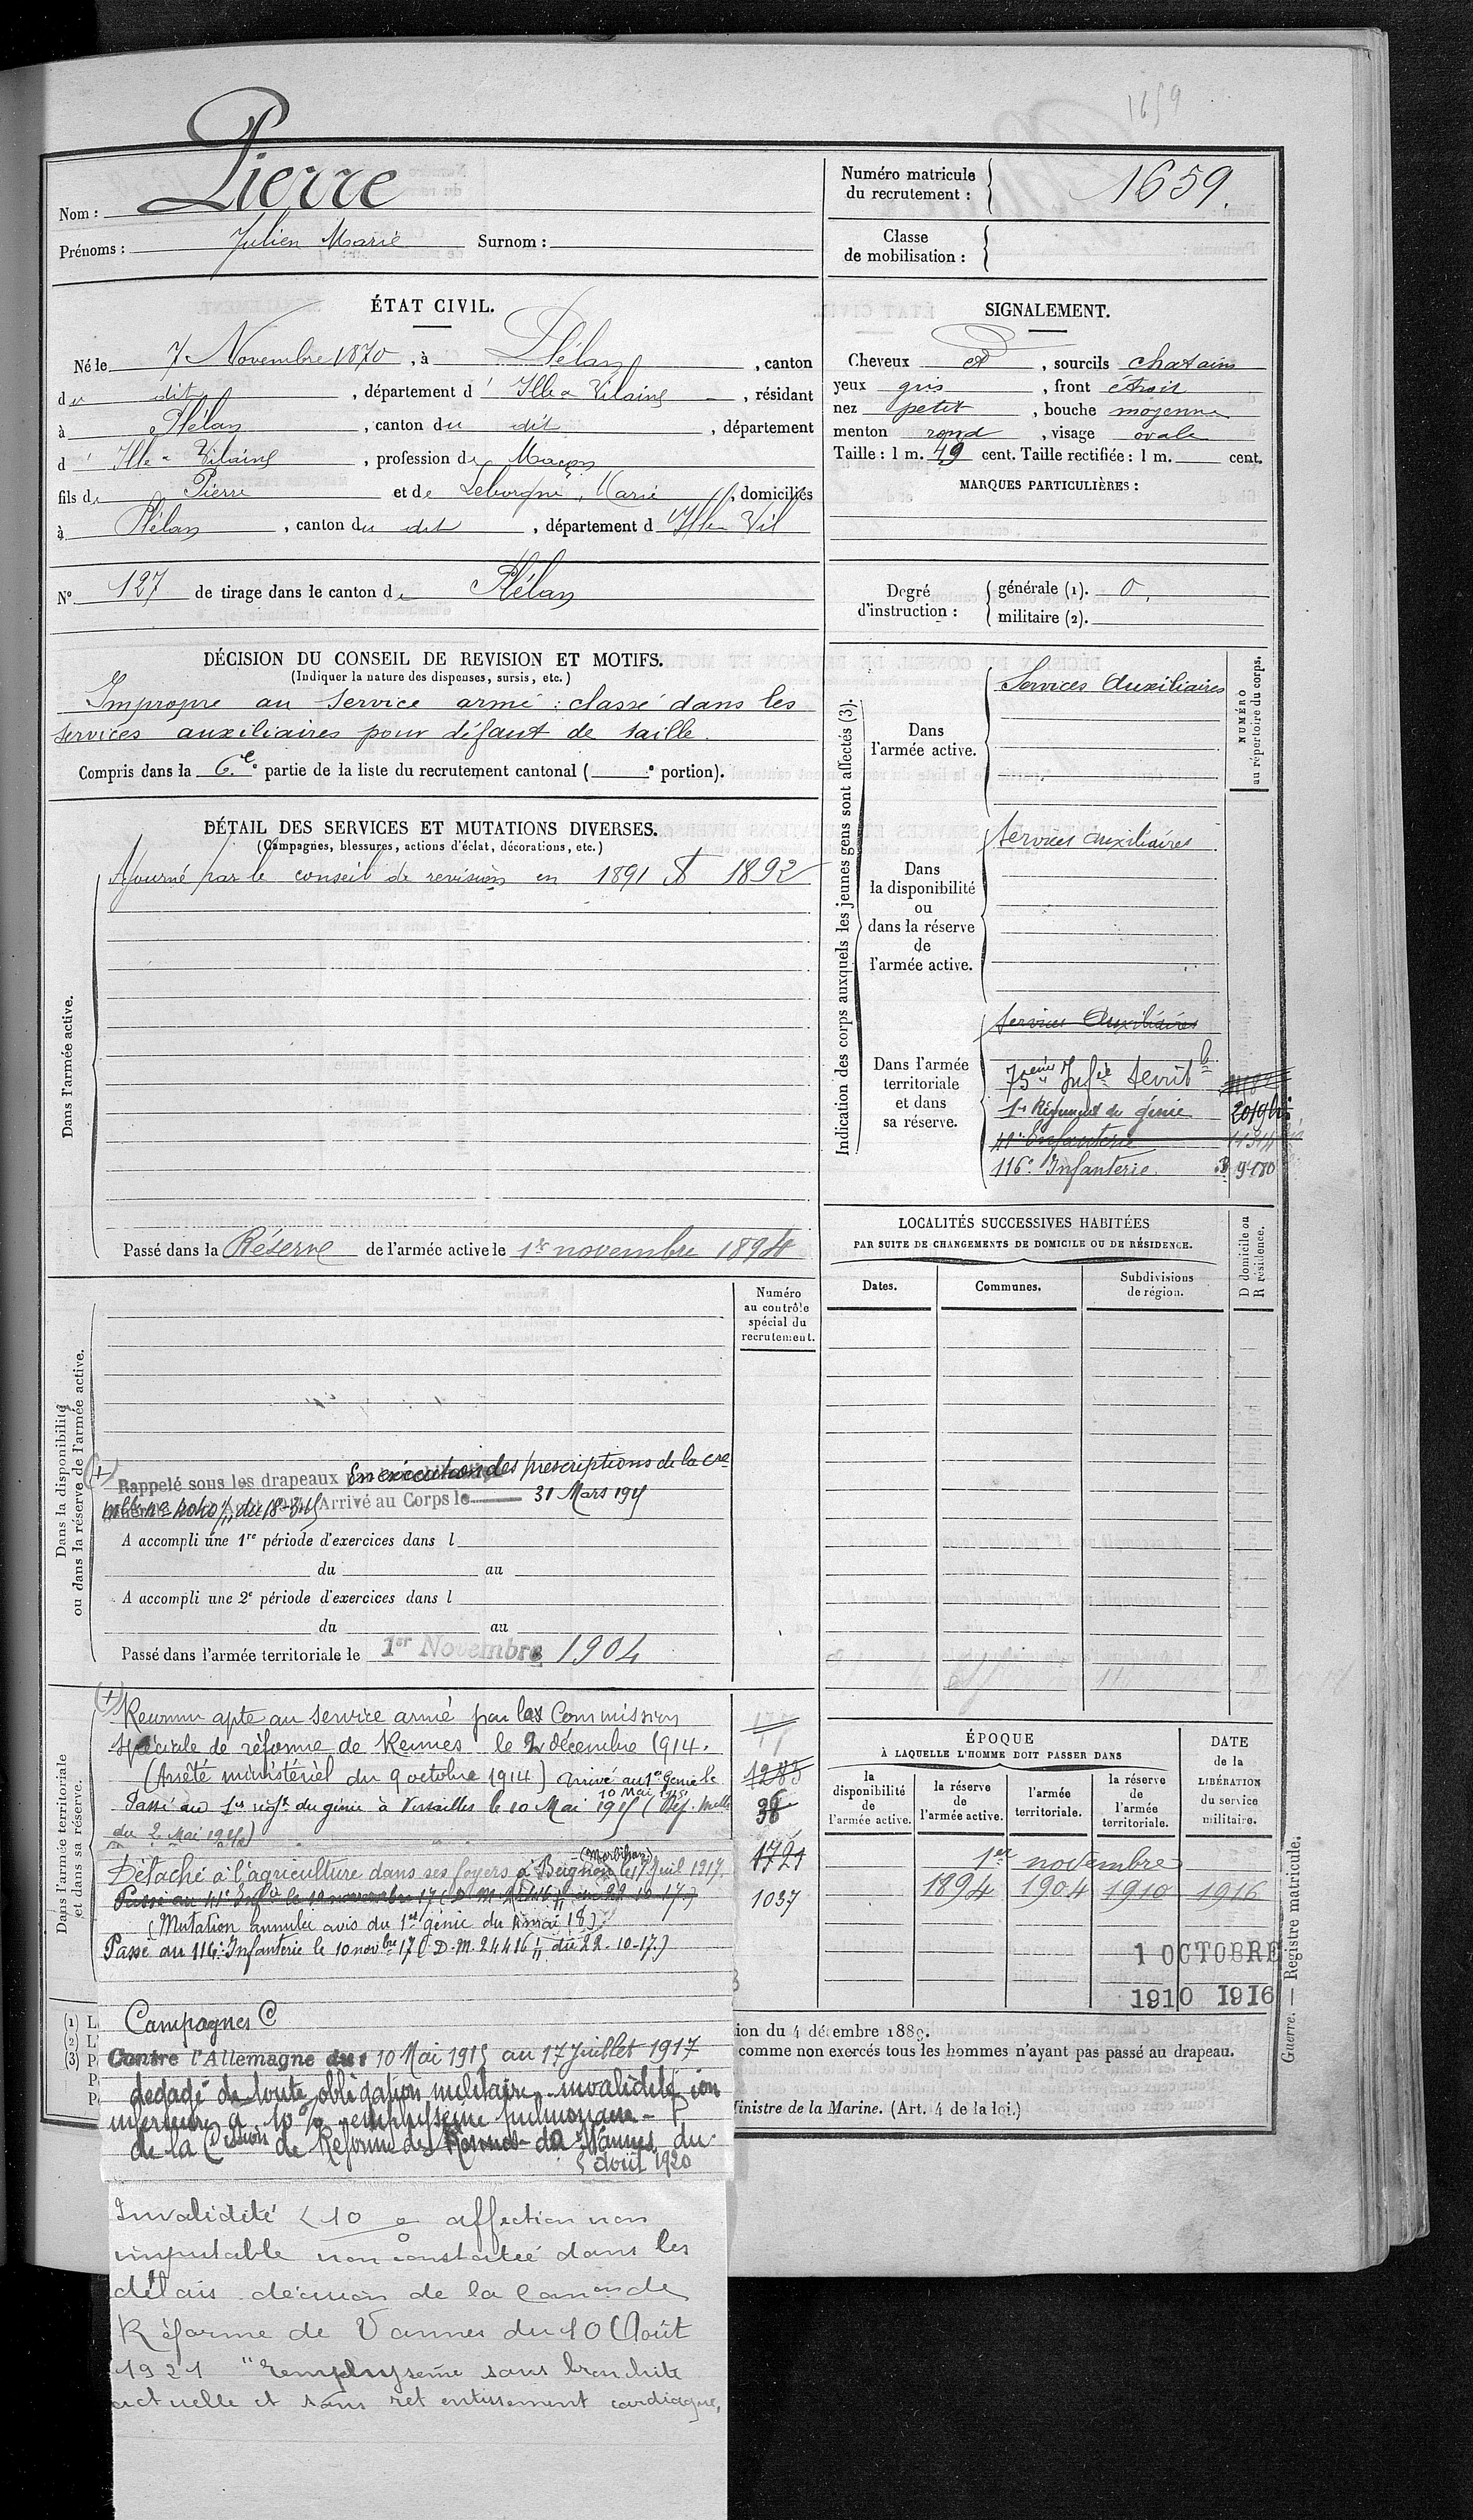 1659
Nom : Pierre
Prénoms : Julien Marie Surnom :
Numéro matricule du recrutement : 1659.
Classe de mobilisation :
ÉTAT CIVIL.
Né le 7 Novembre 1870, à Plélan, canton
du dit, département d' Ille & Vilaine, résidant
à Plélan, canton du dit, département
d' Ille & Vilaine, profession de Maçon
fils de Pierre et de Leborgne, Marie, domiciliés
à Plélan, canton du dit, département d' Ille Vil
N° 127 de tirage dans le canton de Plélan
SIGNALEMENT.
Cheveux et, sourcils chatains
yeux gris, front étroit
nez petit, bouche moyenne
menton rond, visage ovale
Taille : 1 m. 49 cent. Taille rectifiée : 1 m. cent.
MARQUES PARTICULIÈRES :
Degré d'instruction : générale (1). 0.
militaire (2).
DÉCISION DU CONSEIL DE REVISION ET MOTIFS.
(Indiquer la nature des dispenses, sursis, etc.)
Impropre au service armé : classé dans les
services auxiliaires pour défaut de taille.
Compris dans la 6e partie de la liste du recrutement cantonal ( e portion).
DÉTAIL DES SERVICES ET MUTATIONS DIVERSES.
(Campagnes, blessures, actions d'éclat, décorations, etc.)
Dans l'armée active.
Ajourné par le conseil de revision en 1891 et 1892
Passé dans la Réserve de l'armée active le 1er novembre 1894
Indication des corps auxquels les jeunes gens sont affectés (3).
NUMÉRO au répertoire du corps.
Dans l'armée active.
Services Auxiliaires
Dans la disponibilité ou dans la réserve de l'armée active.
Services auxiliaires
Dans l'armée territoriale et dans sa réserve.
Services Auxiliaires
75ème Infie territle
1er Régiment du génie 2019bis
41e Infanterie
116e Infanterie 9180
LOCALITÉS SUCCESSIVES HABITÉES
PAR SUITE DE CHANGEMENTS DE DOMICILE OU DE RÉSIDENCE.
Dates. Communes. Subdivisions de région. D domicile ou R résidence.
Dans la disponibilité ou dans la réserve de l'armée active.
Numéro au contrôle spécial du recrutement.
(+) Rappelé sous les drapeaux En exécution des prescriptions de la cre
du 18-3-15 Arrivé au Corps le 31 Mars 1915
A accompli une 1re période d'exercices dans l
du au
A accompli une 2e période d'exercices dans l
du au
Passé dans l'armée territoriale le 1er Novembre 1904
Dans l'armée territoriale et dans sa réserve.
(+) Reconnu apte au service armé par la Commission
spéciale de réforme de Rennes le 2 décembre 1914.
(Arrêté ministériel du 9 octobre 1914) arrivé au 1er Génie le
10 Mai 1915
Passé au 1er régt du génie à Versailles le 10 Mai 1915 (Dép. Mlle
du 2 Mai 1915)
(Morbihan)
Détaché à l'agriculture dans ses foyers à Beignon le 17 Juil 1917.
Passé au 41e Infie le 10 novembre 17 (D.M. 24416 du 22-10-17.)
(Mutation annulée avis du 1er génie du mai 18).
Passé au 116e Infanterie le 10 novbre 17 (D.M. 24416 du 22-10-17.)
1283
38
1721
1037
Campagnes C
Contre l'Allemagne du 10 Mai 1915 au 17 Juillet 1917
dégagé de toute obligation militaire, invalidité
inférieure à 10% emphysème pulmonaire -
de la Cission de Réforme de Rennes de Vannes du
5 Août 1920
Invalidité < 10 % affection non
imputable non constatée dans les
délais décision de la Comon de
Réforme de Vannes du 10 Août
1921 "emphysème sans bronchite
actuelle et sans retentissement cardiaque,
ÉPOQUE
À LAQUELLE L'HOMME DOIT PASSER DANS
la disponibilité de l'armée active.
la réserve de l'armée active.
l'armée territoriale.
la réserve de l'armée territoriale.
DATE de la LIBÉRATION du service militaire.
1er novembre
1894 1904 1910 1916
1 OCTOBRE
1910 1916
(1) L
(2) L'
(3) P
P
P
ion du 4 décembre 1889.
comme non exercés tous les hommes n'ayant pas passé au drapeau.
Ministre de la Marine. (Art. 4 de la loi.)
Guerre. — Registre matricule.